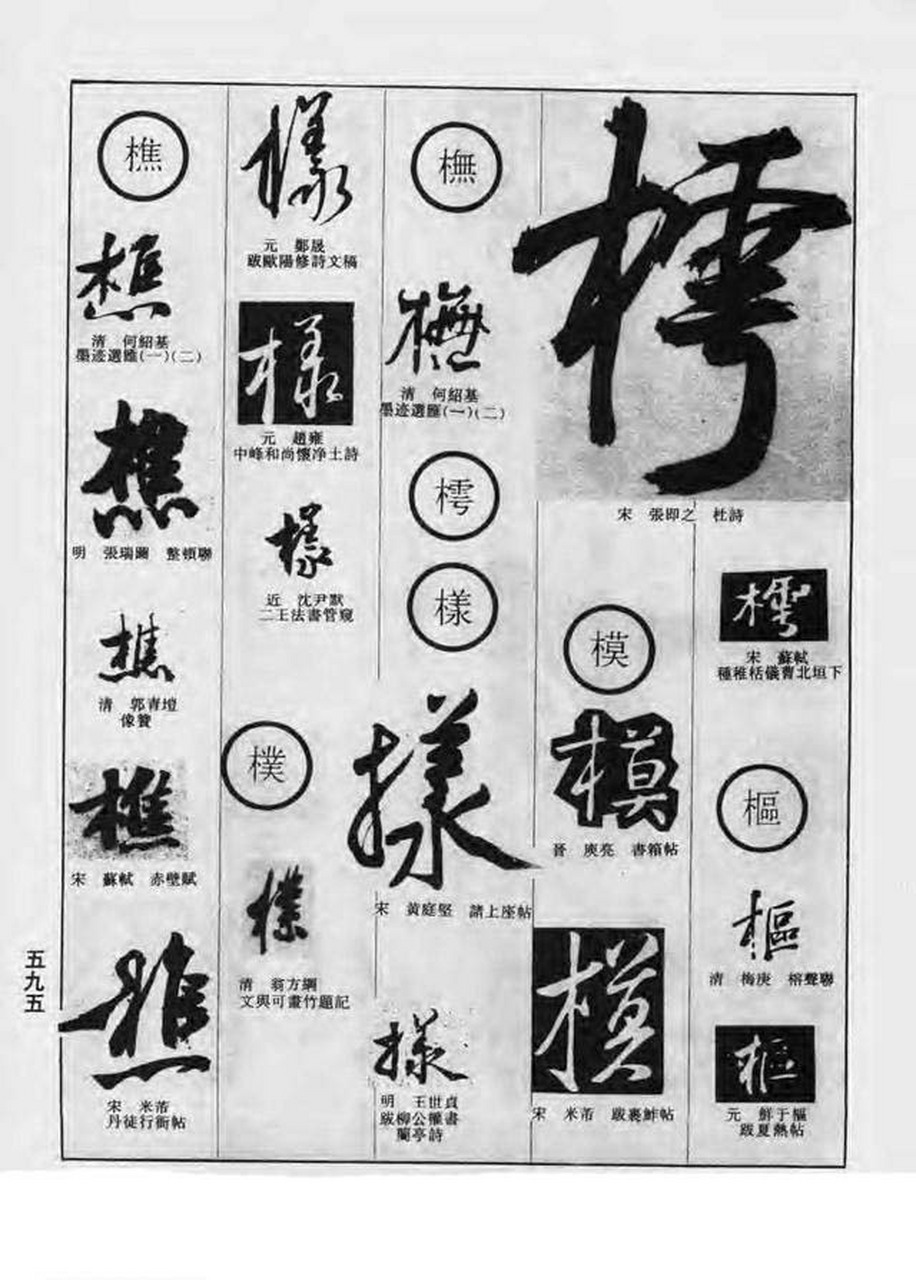 樗
宋　張即之　杜詩
樗
宋　蘇軾
種稚栝儀曹北垣下
樞
樞
清　梅庚　榕聲聯
樞
元　鮮于樞
跋夏熱帖
模
模
晉　庾亮　書箱帖
模
宋　米芾　跋裹鮓帖
橅
橅
清　何紹基
墨迹選匯(一)(二)
樗
樣
樣
宋　黃庭堅　諸上座帖
樣
明　王世貞
跋柳公權書
蘭亭詩
樣
元　鄭晟
跋歐陽修詩文稿
樣
元　趙雍
中峰和尚懷净土詩
樣
近　沈尹默
二王法書管窺
樸
樸
清　翁方綱
文與可畫竹題記
樵
樵
清　何紹基
墨迹選匯(一)(二)
樵
明　張瑞圖　整頓聯
樵
清　郭青
像贊
樵
宋　蘇軾　赤壁賦
樵
宋　米芾
丹徒行衙帖
五九五